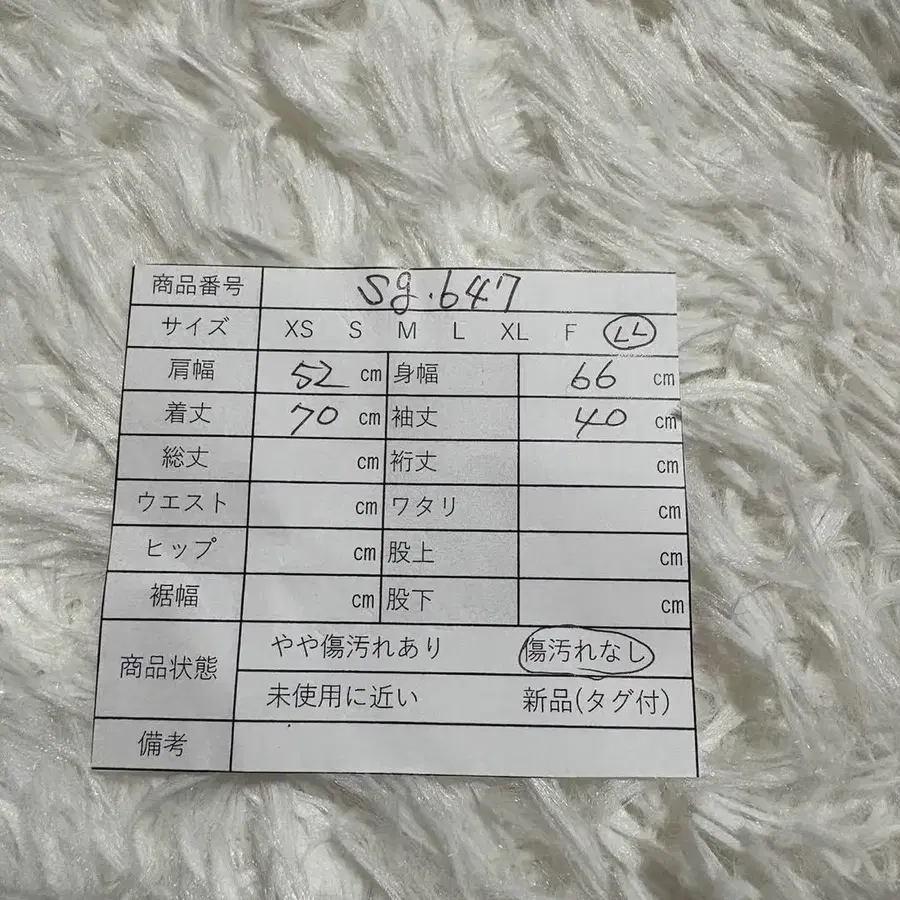 商品番号 sg.647
サイズ XS S M L XL F LL
肩幅 52 cm 身幅 66 cm
着丈 70 cm 袖丈 40 cm
総丈 cm 裄丈 cm
ウエスト cm ワタリ cm
ヒップ cm 股上 cm
裾幅 cm 股下 cm
商品状態 やや傷汚れあり 傷汚れなし
未使用に近い 新品(タグ付)
備考